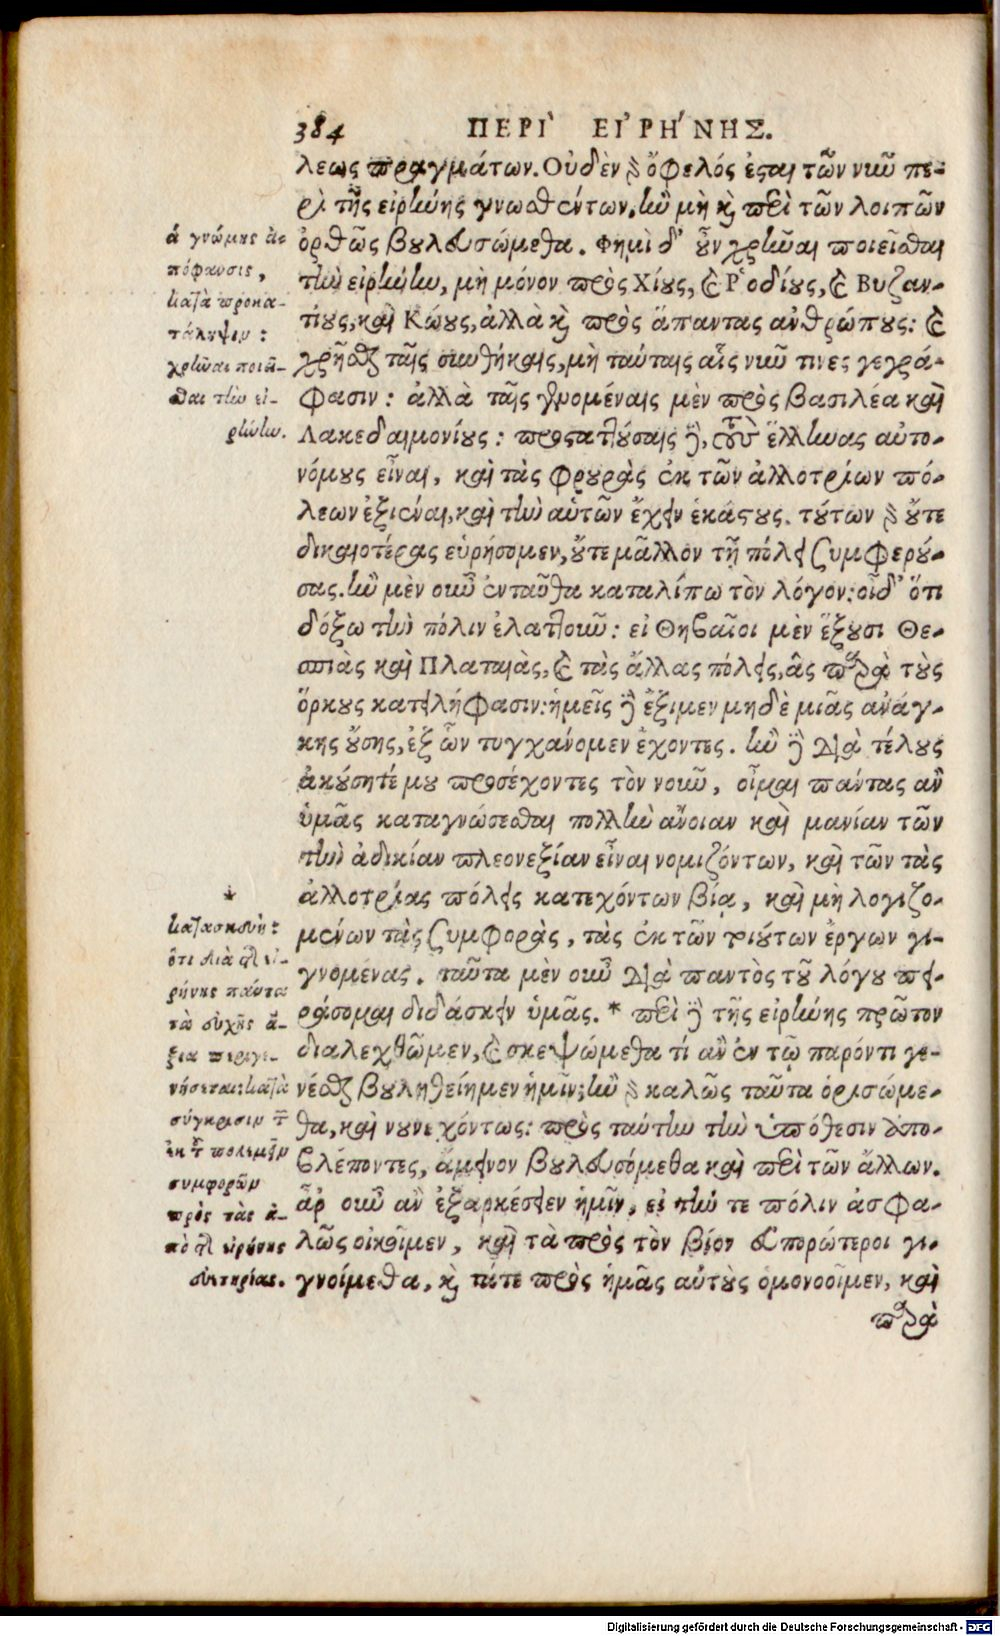 384 ΠΕΡΙ` ΕΙ᾿ΡΗ´ΝΗΣ.
λεως πραγμάτων. Οὐδὲν γὰρ ὄφελός ἐσται τῶν νῦν πε-
ρὶ τῆς εἰρήνης γνωσθέντων, ἢν μὴ καὶ περὶ τῶν λοιπῶν
ὀρθῶς βουλευσώμεθα. Φημὶ δ' οὖν χρῆναι ποιεῖσθαι
τὴν εἰρήνην, μὴ μόνον πρὸς Χίους, καὶ Ῥοδίους, καὶ Βυζαν-
τίους, καὶ Κώους, ἀλλὰ καὶ πρὸς ἅπαντας ἀνθρώπους: καὶ
χρῆσθαι ταῖς συνθήκαις, μὴ ταύταις αἷς νῦν τινες γεγρά-
φασιν: ἀλλὰ ταῖς γενομέναις μὲν πρὸς βασιλέα καὶ
Λακεδαιμονίους: προσταττούσαις δὲ, τοὺς ἕλληνας αὐτο-
νόμους εἶναι, καὶ τὰς φρουρὰς ἐκ τῶν ἀλλοτρίων πό-
λεων ἐξιέναι, καὶ τὴν αὑτῶν ἔχειν ἑκάστους. τούτων γὰρ οὔτε
δικαιοτέρας εὑρήσομεν, οὔτε μᾶλλον τῇ πόλει ξυμφερού-
σας. ἢν μὲν οὖν ἐνταῦθα καταλίπω τὸν λόγον: οἶδ' ὅτι
δόξω τὴν πόλιν ἐλαττοῦν: εἰ Θηβαῖοι μὲν ἕξουσι Θε-
σπιὰς καὶ Πλαταιὰς, καὶ τὰς ἄλλας πόλεις, ἃς παρὰ τοὺς
ὅρκους κατειλήφασιν: ἡμεῖς δὲ ἔξιμεν μηδὲ μιᾶς ἀνάγ-
κης οὔσης, ἐξ ὧν τυγχάνομεν ἔχοντες. ἢν δὲ διὰ τέλους
ἀκούσητέ μου προσέχοντες τὸν νοῦν, οἶμαι πάντας ἂν
ὑμᾶς καταγνώσεσθαι πολλὴν ἄνοιαν καὶ μανίαν τῶν
τὴν ἀδικίαν πλεονεξίαν εἶναι νομιζόντων, καὶ τῶν τὰς
ἀλλοτρίας πόλεις κατεχόντων βίᾳ, καὶ μὴ λογιζο-
μένων τὰς ξυμφορὰς, τὰς ἐκ τῶν τοιούτων ἔργων γι-
γνομένας. ταῦτα μὲν οὖν διὰ παντὸς τοῦ λόγου πει-
ράσομαι διδάσκειν ὑμᾶς. * περὶ δὲ τῆς εἰρήνης πρῶτον
διαλεχθῶμεν, καὶ σκεψώμεθα τί ἂν ἐν τῷ παρόντι γε-
νέσθαι βουληθείημεν ἡμῖν; ἢν γὰρ καλῶς ταῦτα ὁρισώμε-
θα, καὶ νουνεχόντως: πρὸς ταύτην τὴν ὑπόθεσιν ἀπο-
βλέποντες, ἄμεινον βουλευσόμεθα καὶ περὶ τῶν ἄλλων.
ἆρ οὖν ἂν ἐξαρκέσειεν ἡμῖν, εἰ τήν τε πόλιν ἀσφα-
λῶς οἰκοῖμεν, καὶ τὰ πρὸς τὸν βίον εὐπορώτεροι γι-
γνοίμεθα, καὶ τά τε πρὸς ἡμᾶς αὐτοὺς ὁμονοοῖμεν, καὶ
παρὰ
ἡ γνώμης ἀ-
πόφανσις,
κατὰ προκα-
τάληψιν:
χρῆναι ποιεῖ-
σθαι τὴν εἰ-
ρήνην.
*
κατασκευὴ:
ὅτι διὰ τῆς εἰ-
ρήνης πάντα
τὰ εὐχῆς ἄ-
ξια περιγε-
νήσεται: κατὰ
σύγκρισιν τῶν
ἐκ τῶν πολεμείων
συμφορῶν
πρὸς τὰς ἀ-
πὸ τῆς εἰρήνης
σωτηρίας.
Digitalisierung gefördert durch die Deutsche Forschungsgemeinschaft - DFG